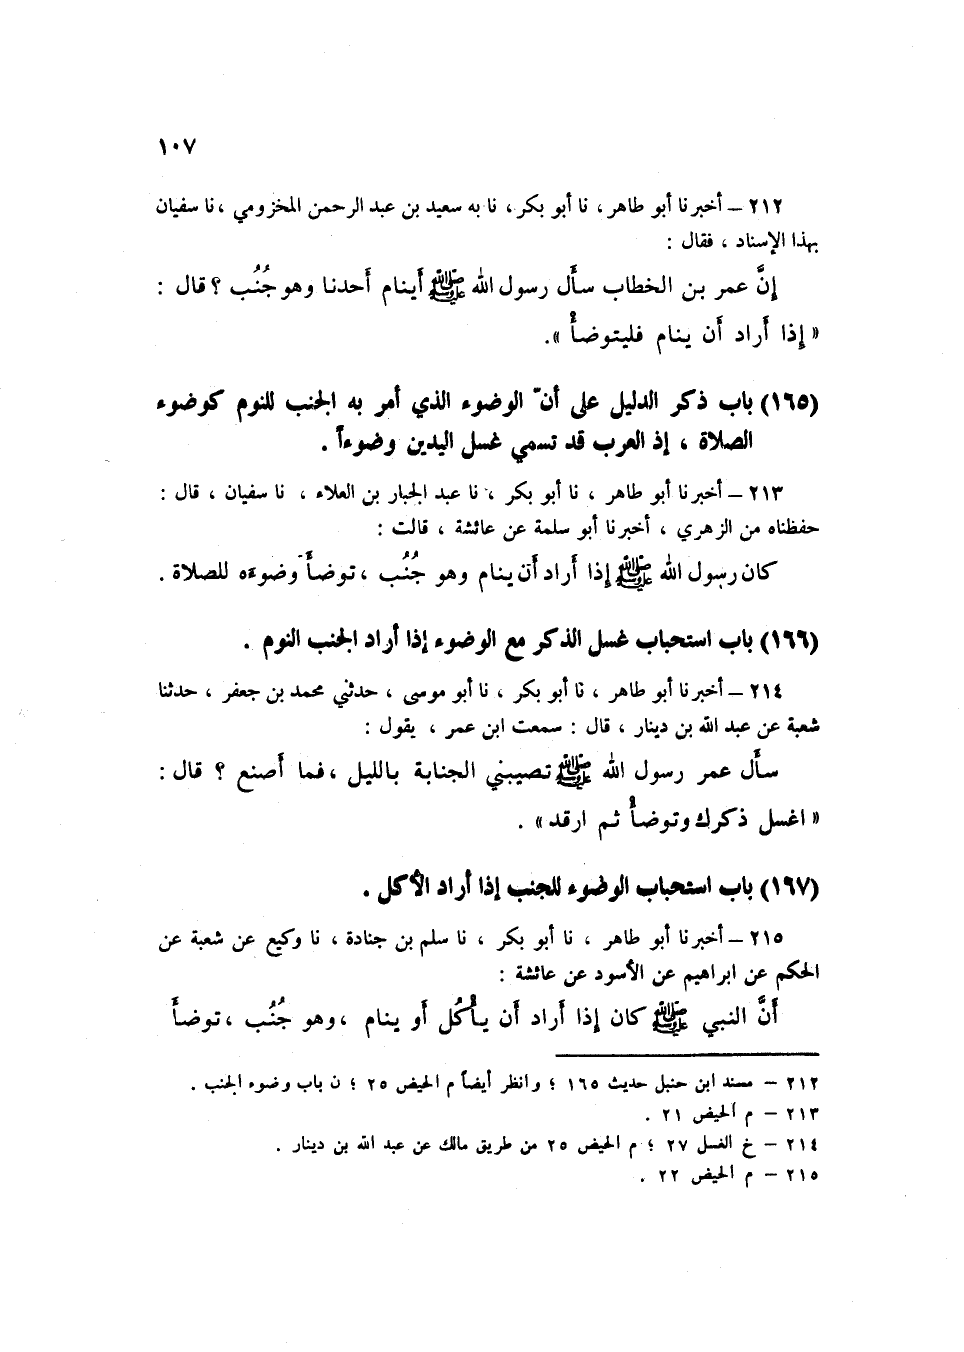 ١٠٧
٢١٢ – أخبرنا أبو طاهر ، نا أبو بكر ، نا به سعيد بن عبد الرحمن المخزومي ، نا سفيان
بهذا الإسناد ، فقال :
إنَّ عمر بن الخطاب سأل رسول الله ﷺ أينام أحدنا وهو جُنُب ؟ قال :
« إذا أراد أن ينام فليتوضأْ » .
(١٦٥) باب ذكر الدليل على أنّ الوضوء الذي أمر به الجنب للنوم كوضوء
الصلاة ، إذ العرب قد تسمي غسل اليدين وضوءاً .
٢١٣ – أخبرنا أبو طاهر ، نا أبو بكر ، نا عبد الجبار بن العلاء ، نا سفيان ، قال :
حفظناه من الزهري ، أخبرنا أبو سلمة عن عائشة ، قالت :
كان رسول الله ﷺ إذا أراد أن ينام وهو جُنُب ، توضأ وضوءه للصلاة .
(١٦٦) باب استحباب غسل الذكر مع الوضوء إذا أراد الجنب النوم .
٢١٤ – أخبرنا أبو طاهر ، نا أبو بكر ، نا أبو موسى ، حدثني محمد بن جعفر ، حدثنا
شعبة عن عبد الله بن دينار ، قال : سمعت ابن عمر ، يقول :
سأل عمر رسول الله ﷺ تصيبني الجنابة بالليل ، فما أصنع ؟ قال :
« اغسل ذكرك وتوضأْ ثم ارقد » .
(١٦٧) باب استحباب الوضوء للجنب إذا أراد الأكل .
٢١٥ – أخبرنا أبو طاهر ، نا أبو بكر ، نا سلم بن جنادة ، نا وكيع عن شعبة عن
الحكم عن ابراهيم عن الأسود عن عائشة :
أنَّ النبي ﷺ كان إذا أراد أن يأكُل أو ينام ، وهو جُنُب ، توضأ
٢١٢ – مسند ابن حنبل حديث ١٦٥ ؛ وانظر أيضاً م الحيض ٢٥ ؛ ن باب وضوء الجنب .
٢١٣ – م الحيض ٢١ .
٢١٤ – خ الغسل ٢٧ ؛ م الحيض ٢٥ من طريق مالك عن عبد الله بن دينار .
٢١٥ – م الحيض ٢٢ .